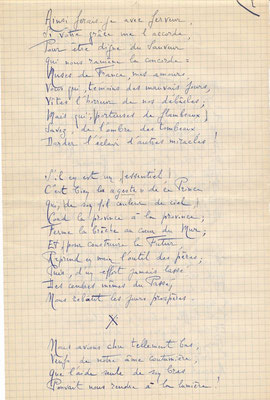 Ainsi ferais-je avec ferveur,
Si votre grâce me l'accorde,
Pour être digne du Sauveur
Qui nous ramène la concorde :
Muses de France, mes amours,
Vous qui, témoins des mauvais jours,
Vîtes l'horreur de nos débâcles,
Mais qui, porteuses de flambeaux,
Savez, de l'ombre des tombeaux
Darder l'éclair d'autres miracles !
S'il en est un d'essentiel !
C'est bien la geste de ce Prince
Qui, de par fil couleur de ciel,
Coud la province à la province ;
Ferme la brèche au cœur du Mur,
Et, pour construire le Futur
Reprend en main l'outil des pères ;
Puis, d'un effort jamais lassé
Des cendres mêmes du Passé,
Nous les jours prospères.
X
Nous avions chu tellement bas,
Veufs de notre âme coutumière,
Que l'aide seule de son bras
Pouvait nous rendre à la lumière !